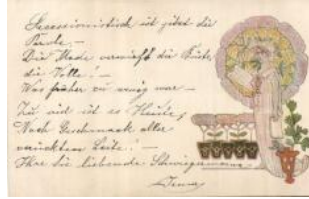 Secessionistisch ist jetzt die
Parole, —
Die Mode vermischt die Güte
die Tolle. —
Was früher zu wenig war —
Zu viel ist es Heute,
Nach Geschmack aller
verückten Leute! —
Ihre Sie liebende Schwiegermama